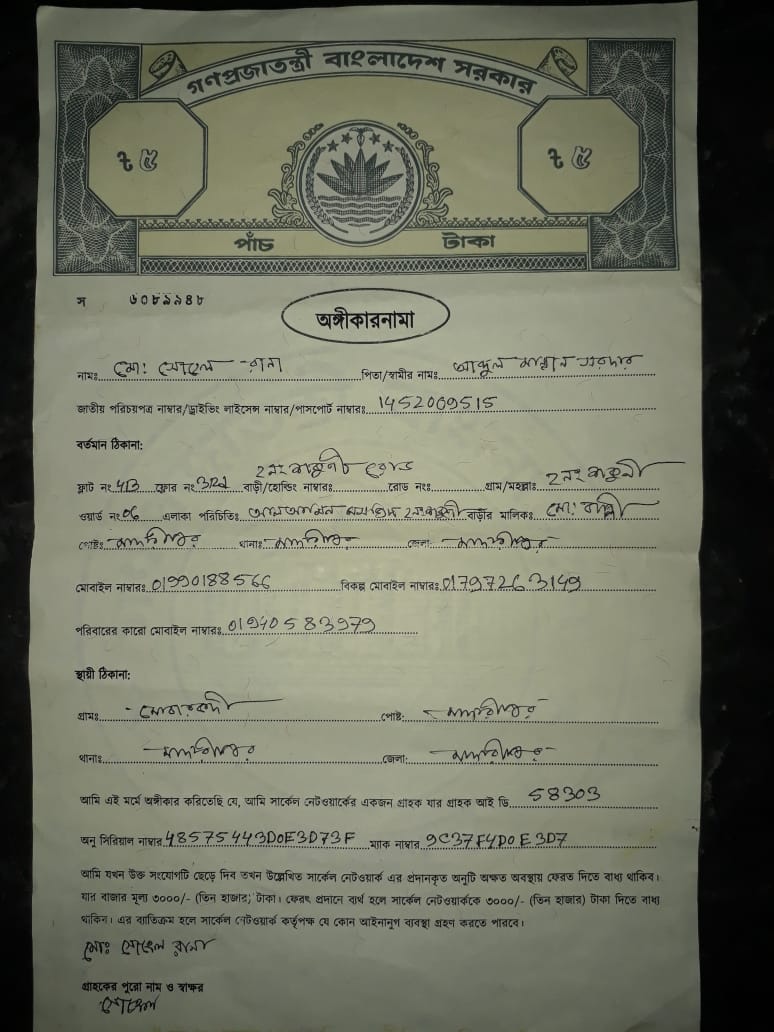 গণপ্রজাতন্ত্রী বাংলাদেশ সরকার
৳ ৫ ৳ ৫
পাঁচ টাকা
স ৬০৮৯৯৪৮
অঙ্গীকারনামা
নামঃ মো: সোহেল রানা পিতা/স্বামীর নামঃ আব্দুল মান্নান সরদার
জাতীয় পরিচয়পত্র নাম্বার/ড্রাইভিং লাইসেন্স নাম্বার/পাসপোর্ট নাম্বারঃ 1452009515
বর্তমান ঠিকানা:
ফ্লাট নং 4B ফ্লোর নং 3rd বাড়ী/হোল্ডিং নাম্বারঃ ২নং রোড রোড নংঃ গ্রাম/মহল্লাঃ ২নং
ওয়ার্ড নং 06 এলাকা পরিচিতিঃ মসজিদ ২নং বাড়ীর মালিকঃ মো:
পোষ্টঃ মাদারীপুর থানাঃ মাদারীপুর জেলা: মাদারীপুর
মোবাইল নাম্বারঃ 01990188566 বিকল্প মোবাইল নাম্বারঃ 01797263149
পরিবারের কারো মোবাইল নাম্বারঃ 01940583979
স্থায়ী ঠিকানা:
গ্রামঃ পোষ্ট: মাদারীপুর
থানাঃ মাদারীপুর জেলা: মাদারীপুর
আমি এই মর্মে অঙ্গীকার করিতেছি যে, আমি সার্কেল নেটওয়ার্কের একজন গ্রাহক যার গ্রাহক আই ডি 58303
অনু সিরিয়াল নাম্বার 48575443D0E3D73F ম্যাক নাম্বার 9C37F4D0E3D7
আমি যখন উক্ত সংযোগটি ছেড়ে দিব তখন উল্লেখিত সার্কেল নেটওয়ার্ক এর প্রদানকৃত অনুটি অক্ষত অবস্থায় ফেরত দিতে বাধ্য থাকিব।
যার বাজার মূল্য ৩০০০/- (তিন হাজার) টাকা। ফেরৎ প্রদানে ব্যর্থ হলে সার্কেল নেটওয়ার্ককে ৩০০০/- (তিন হাজার) টাকা দিতে বাধ্য
থাকিব। এর ব্যতিক্রম হলে সার্কেল নেটওয়ার্ক কর্তৃপক্ষ যে কোন আইনানুগ ব্যবস্থা গ্রহণ করতে পারবে।
মোঃ সোহেল রানা
গ্রাহকের পুরো নাম ও স্বাক্ষর
সোহেল